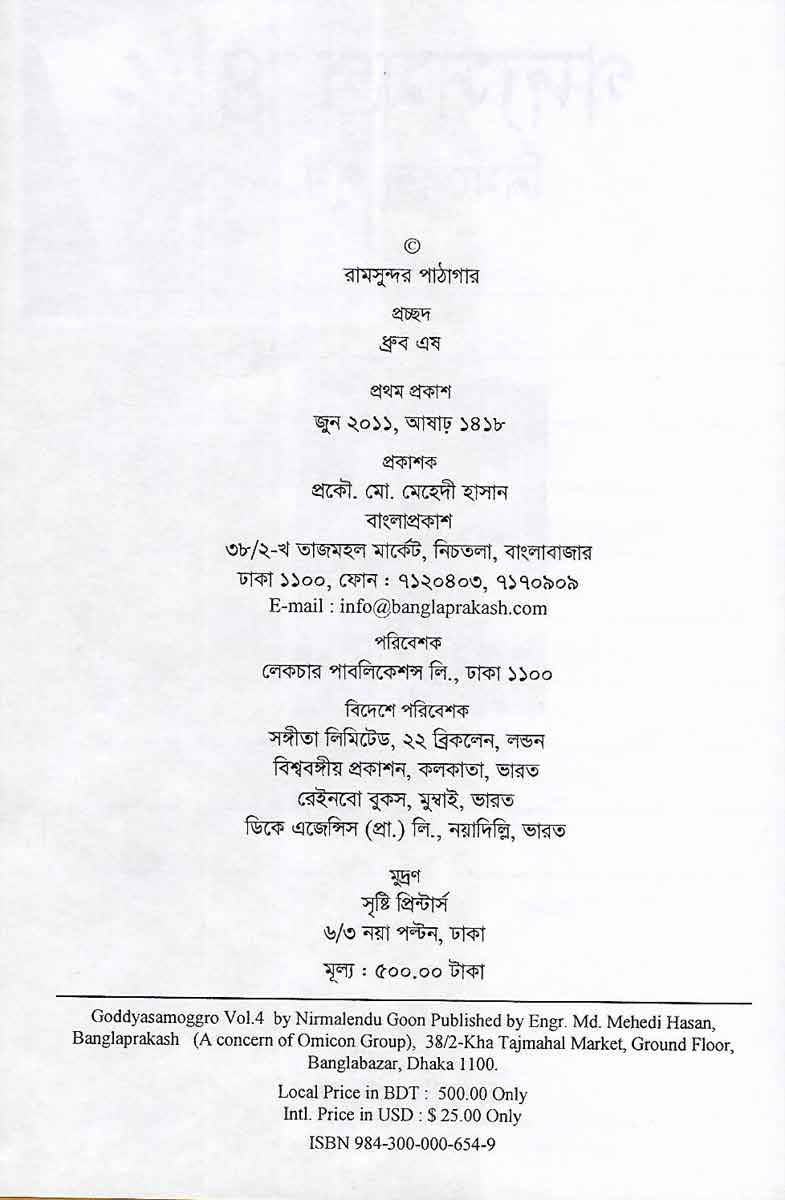 ©
রামসুন্দর পাঠাগার
প্রচ্ছদ
ধ্রুব এষ
প্রথম প্রকাশ
জুন ২০১১, আষাঢ় ১৪১৮
প্রকাশক
প্রকৌ. মো. মেহেদী হাসান
বাংলাপ্রকাশ
৩৮/২-খ তাজমহল মার্কেট, নিচতলা, বাংলাবাজার
ঢাকা ১১০০, ফোন : ৭১২০৪০৩, ৭১৭০৯০৯
E-mail : info@banglaprakash.com
পরিবেশক
লেকচার পাবলিকেশন্স লি., ঢাকা ১১০০
বিদেশে পরিবেশক
সঙ্গীতা লিমিটেড, ২২ ব্রিকলেন, লন্ডন
বিশ্ববঙ্গীয় প্রকাশন, কলকাতা, ভারত
রেইনবো বুকস, মুম্বাই, ভারত
ডিকে এজেন্সিস (প্রা.) লি., নয়াদিল্লি, ভারত
মুদ্রণ
সৃষ্টি প্রিন্টার্স
৬/৩ নয়া পল্টন, ঢাকা
মূল্য : ৫০০.০০ টাকা
Goddyasamoggro Vol.4 by Nirmalendu Goon Published by Engr. Md. Mehedi Hasan,
Banglaprakash (A concern of Omicon Group), 38/2-Kha Tajmahal Market, Ground Floor,
Banglabazar, Dhaka 1100.
Local Price in BDT : 500.00 Only
Intl. Price in USD : $ 25.00 Only
ISBN 984-300-000-654-9